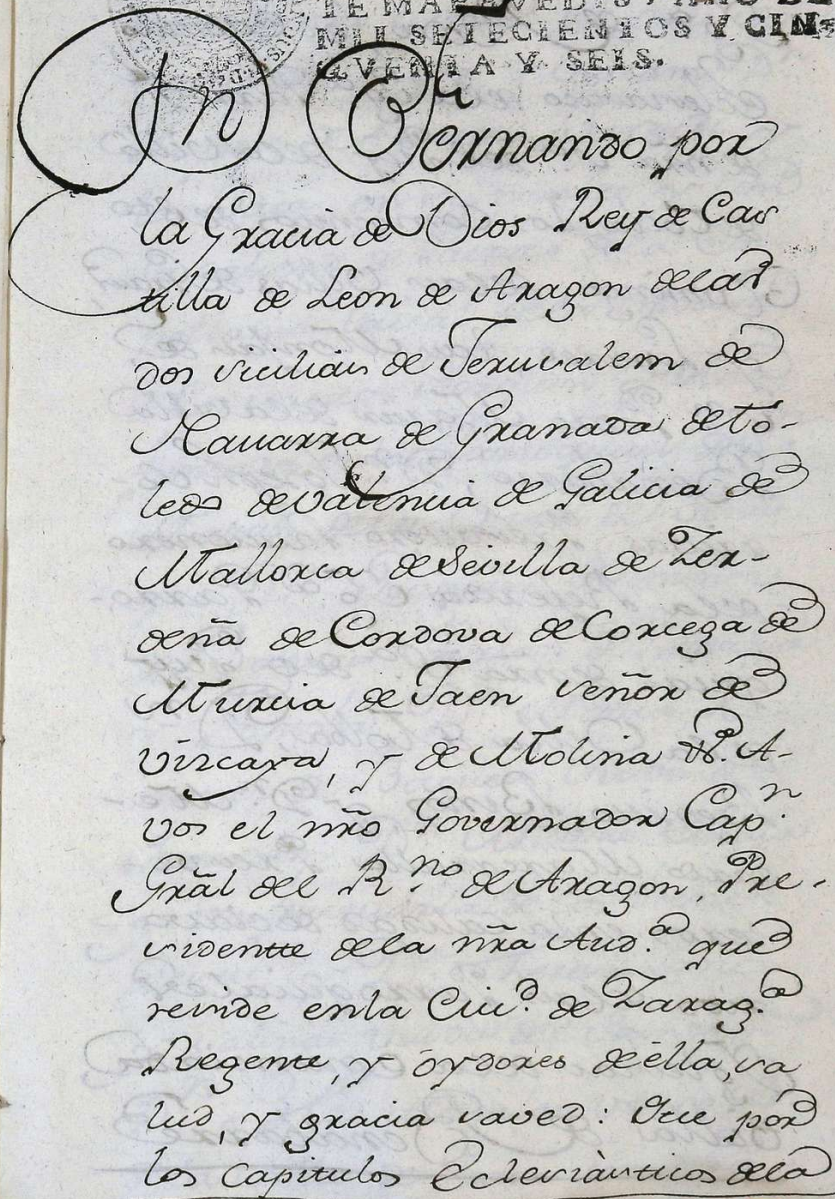 TE MARAVEDIS, AÑO DE
MIL SETECIENTOS Y CIN-
QVENTA Y SEIS.
Dn Fernando por
la Gracia de Dios Rey de Cas
tilla de Leon de Aragon de las
dos sicilias de Jerusalem de
Navarra de Granada de To-
ledo de valencia de Galicia de
Mallorca de Sevilla de Zer-
deña de Cordova de Corcega de
Murcia de Jaen señor de
vizcaya, y de Molina &a. A-
vos el nro Governador Capn.
Grãl del Rno. de Aragon, Pre-
sidentte de la nra Auda. que
reside en la Ciud. de Zaraga.
Regente, y óydores de élla, sa
lud, y gracia saved: Que por
los Capitulos Eclesiàsticos dela